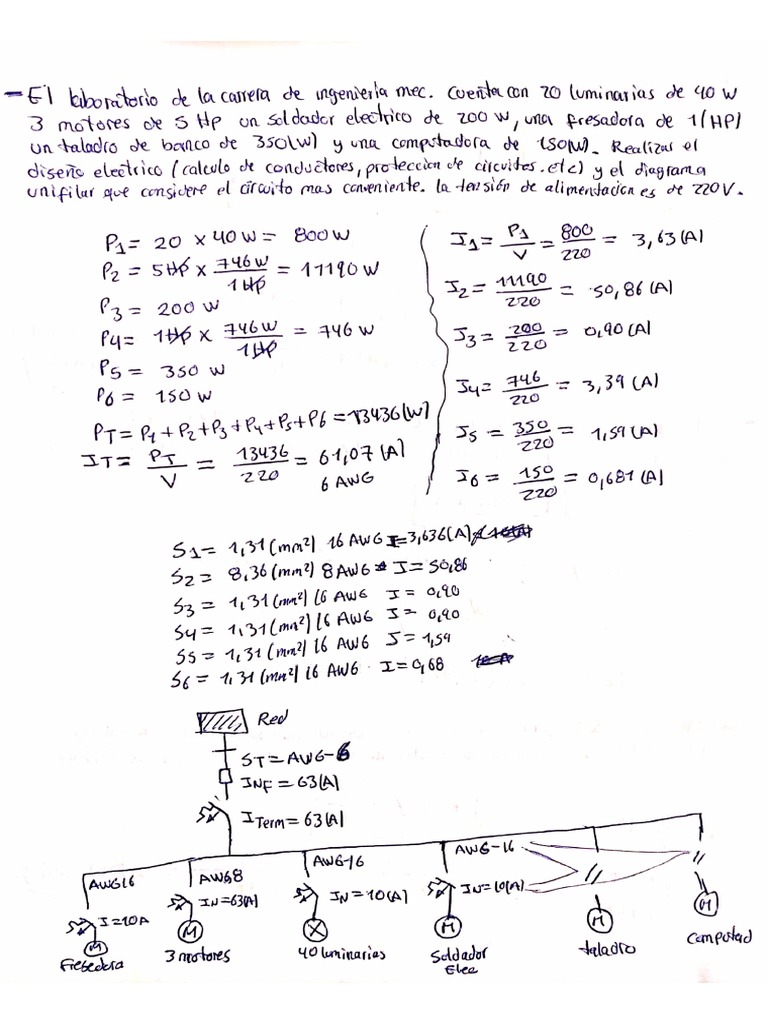 - El laboratorio de la carrera de ingenieria mec. cuenta con 20 luminarias de 40 W
3 motores de 5 HP un soldador electrico de 200 W, una fresadora de 1(HP)
un taladro de banco de 350(W) y una computadora de 150(W). Realizar el
diseño electrico (calculo de conductores, proteccion de circuitos. etc) y el diagrama
unifilar que considere el circuito mas conveniente. la tensión de alimentacion es de 220V.
P1 = 20 × 40W = 800W
P2 = 5HP × 746W/1HP = 11190W
P3 = 200 W
P4 = 1HP × 746W/1HP = 746W
P5 = 350 W
P6 = 150 W
PT = P1+P2+P3+P4+P5+P6 = 13436(W)
IT = PT/V = 13436/220 = 61,07(A)
6 AWG
I1 = P1/V = 800/220 = 3,63(A)
I2 = 11190/220 = 50,86(A)
I3 = 200/220 = 0,90(A)
I4 = 746/220 = 3,39(A)
I5 = 350/220 = 1,59(A)
I6 = 150/220 = 0,681(A)
S1 = 1,31(mm²) 16 AWG I=3,636(A)
S2 = 8,36(mm²) 8AWG I = 50,86
S3 = 1,31(mm²) 16 AWG I = 0,90
S4 = 1,31(mm²) 16 AWG I = 0,90
S5 = 1,31(mm²) 16 AWG I = 1,59
S6 = 1,31(mm²) 16 AWG . I = 0,68
Red
ST = AWG-6
INF = 63(A)
ITerm = 63(A)
AWG16 AWG8 AWG-16 AWG-16
I=10A IN=63(A) IN=10(A) IN=10(A)
M M X M M M
Fresadora 3 motores 40 luminarias Soldador Elec taladro Computad